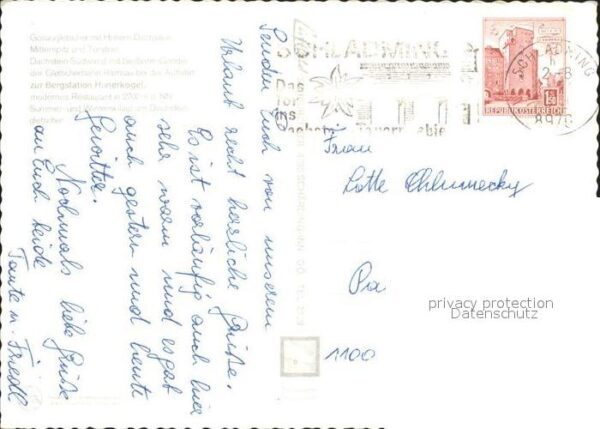 Gosaugletscher mit Hohem Dachstein
Mitterspitz und Torstein
Dachstein-Südwand mit Seilbahn-Gondel
der Gletscherbahn Ramsau bei der Auffahrt
zur Bergstation Hunerkogel,
modernes Restaurant in 2700 m ü. NN
Sommer- und Winterskilauf am Dachstein-
gletscher
Senden Euch von unserem
Urlaub recht herzliche Grüße.
Es ist vorläufig auch hier
sehr warm und es gab
auch gestern und heute
Gewitter.
Nochmals liebe Grüße
an Euch beide
Tante u. Friedl
SCHLADMING
Das
Tor
ins
Dachstein-Tauerngebiet
REPUBLIK ÖSTERREICH
SCHLADMING
8970
Frau
Lotte Chlumecky
1100
privacy protection
Datenschutz